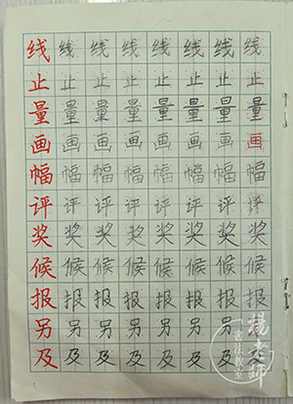 线线线线线线线线
止止止止止止止止
量量量量量量量量
画画画画画画画画
幅幅幅幅幅幅幅幅
评评评评评评评评
奖奖奖奖奖奖奖奖
候候候候候候候候
报报报报报报报报
另另另另另另另另
及及及及及及及及
楊老師